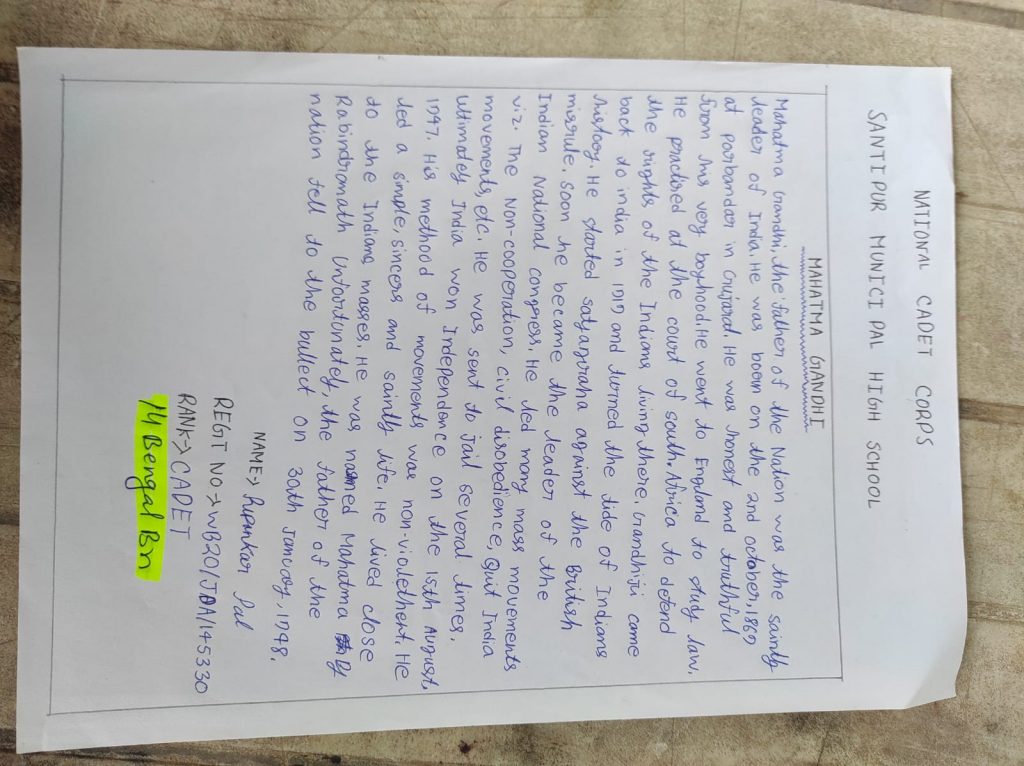 NATIONAL CADET CORPS
SANTIPUR MUNICIPAL HIGH SCHOOL
MAHATMA GANDHI
Mahatma Gandhi, the father of the Nation was the saintly
leader of India. He was boern on the 2nd october, 1869
at Porbandar in Gujarat. He was honest and truthful
from his very boyhood. He went to England to study law.
He practised at the court of south. Africa to defend
the rights of the Indians living there. Grandhiji came
back to india in 1919 and turned the tide of Indians
history. He started satyagraha against the British
misrule. Soon he became the leader of the
Indian National congress. He led many mass movements
viz. The Non-cooperation, civil disobedience, Quit India
movements, etc. He was sent to Jail several times.
Ultimately India won Independence on the 15th August,
1947. His methood of movements was non-violethent. He
led a simple, sincers and saintly life. He lived close
to the Indians masses. He was named Mahatma By
Rabindromath Unfortunately, the father of the
nation fell to the bullect on 30th January, 1948.
NAME-> Rupankar Pal
REGT NO-> WB20/JDA/145330
RANK-> CADET
14 Bengal Bn